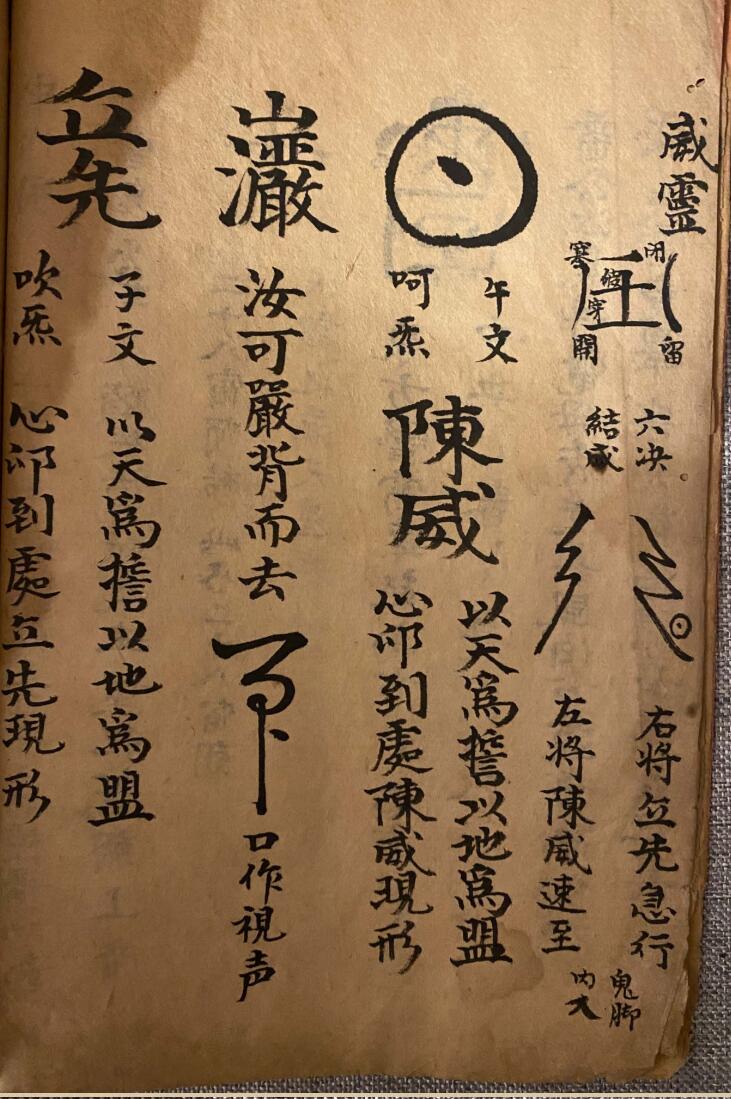 威靈
閉
塞
破
穿
開
留
六决
結成
右将立先急行
左将陳威速至
鬼脚
内大
午文
呵炁
陳威
以天爲誓以地爲盟
心印到處陳威現形
汝可嚴背而去
口作視声
立先
子文
吹炁
以天爲誓以地爲盟
心印到處立先現形